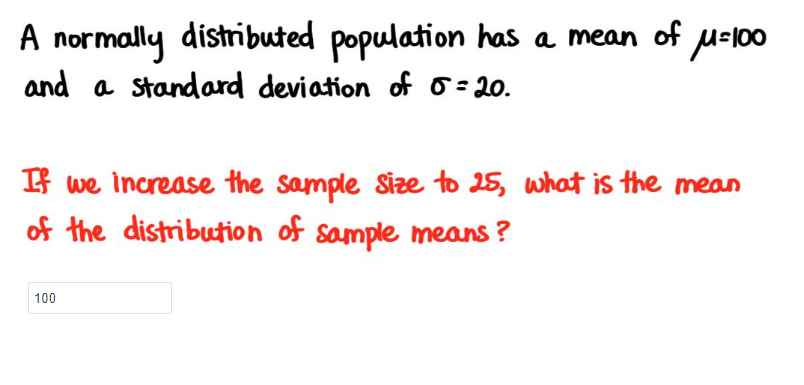 A normally distributed population has a mean of μ=100
and a standard deviation of σ=20.
If we increase the sample size to 25, what is the mean
of the distribution of sample means?
100